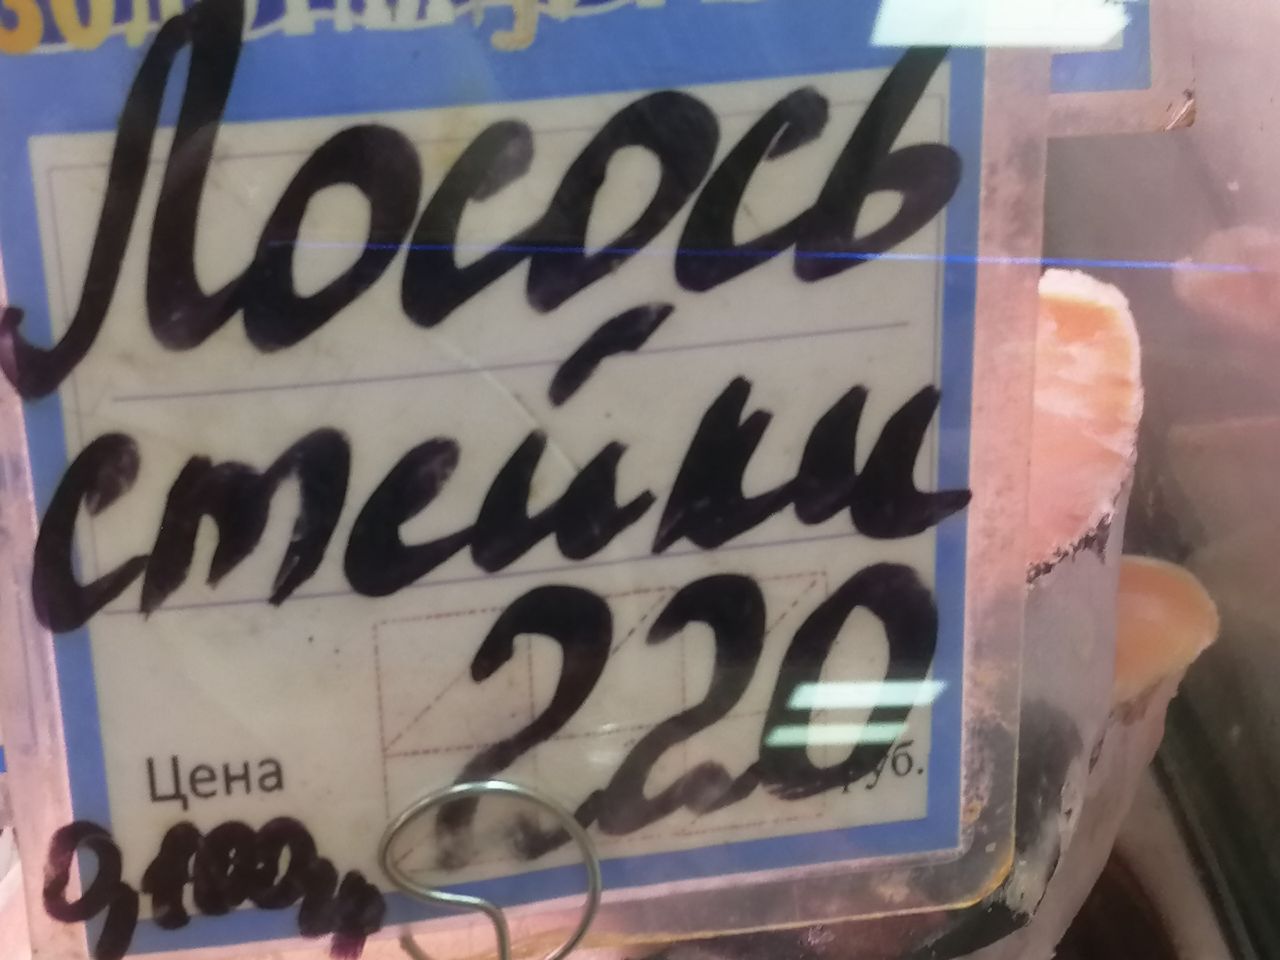 Лосось
стейки
220
Цена руб.
0,100